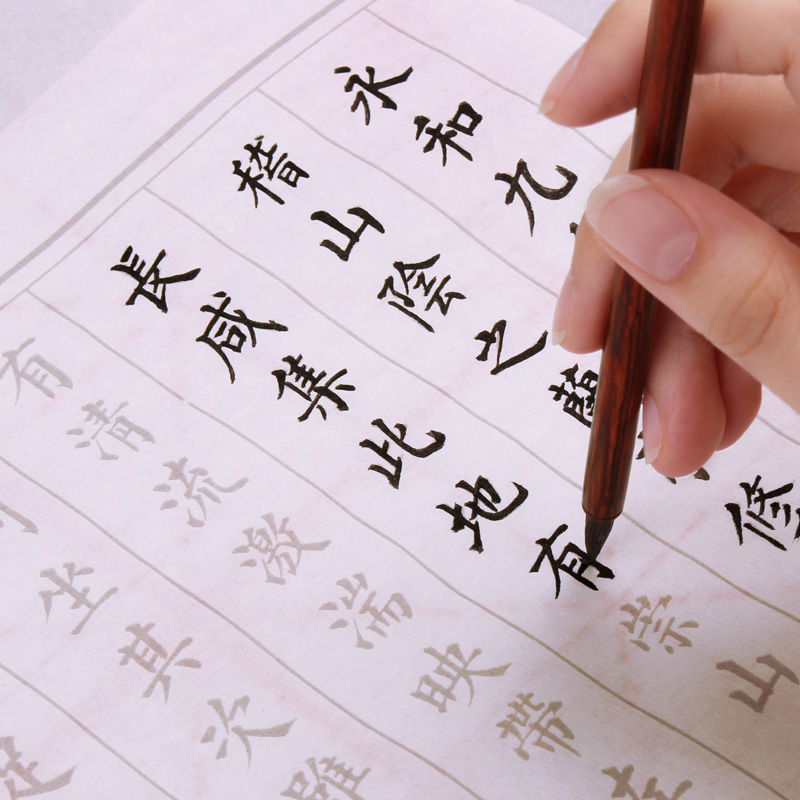 永和九
稽山陰之蘭修
長咸集此地有崇山
有清流激湍映帶
坐其次雖
足